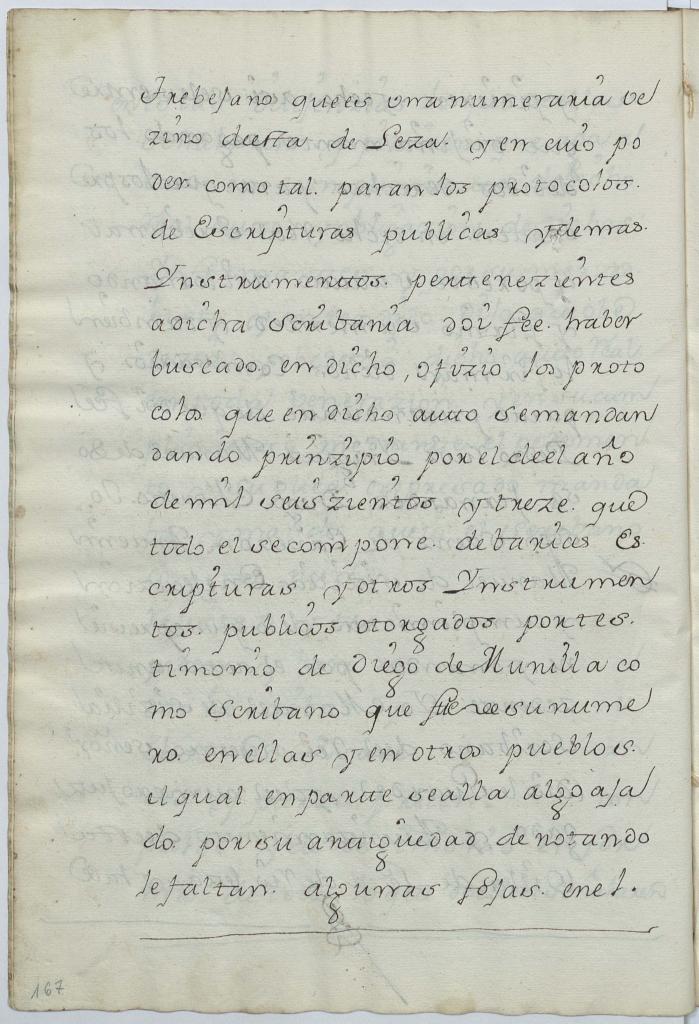 Trebejano quees una numeraria ve
zino deesta de Leza. y en cuio po
der como tal. paran los protocolos.
de Escripturas publicas y demas.
Ynstrumenttos. perttenezientes
adicha scribania doi fee. haber
buscado en dicho, ofizio los proto
colos que en dicho autto semandan
dando prinzipio por el deel año
demil seiszientos y treze. que
todo el secompone. debarias Es.
cripturas y otros Ynstrumen
tos. publicos otorgados portes.
timonio de Diego de Munilla co
mo scribano que fue desu nume
ro. en ellas y en otros pueblos.
el qual en partte sealla algo aja
do. por su antiguedad denotando
le faltan. algunas fojas. en el.
167